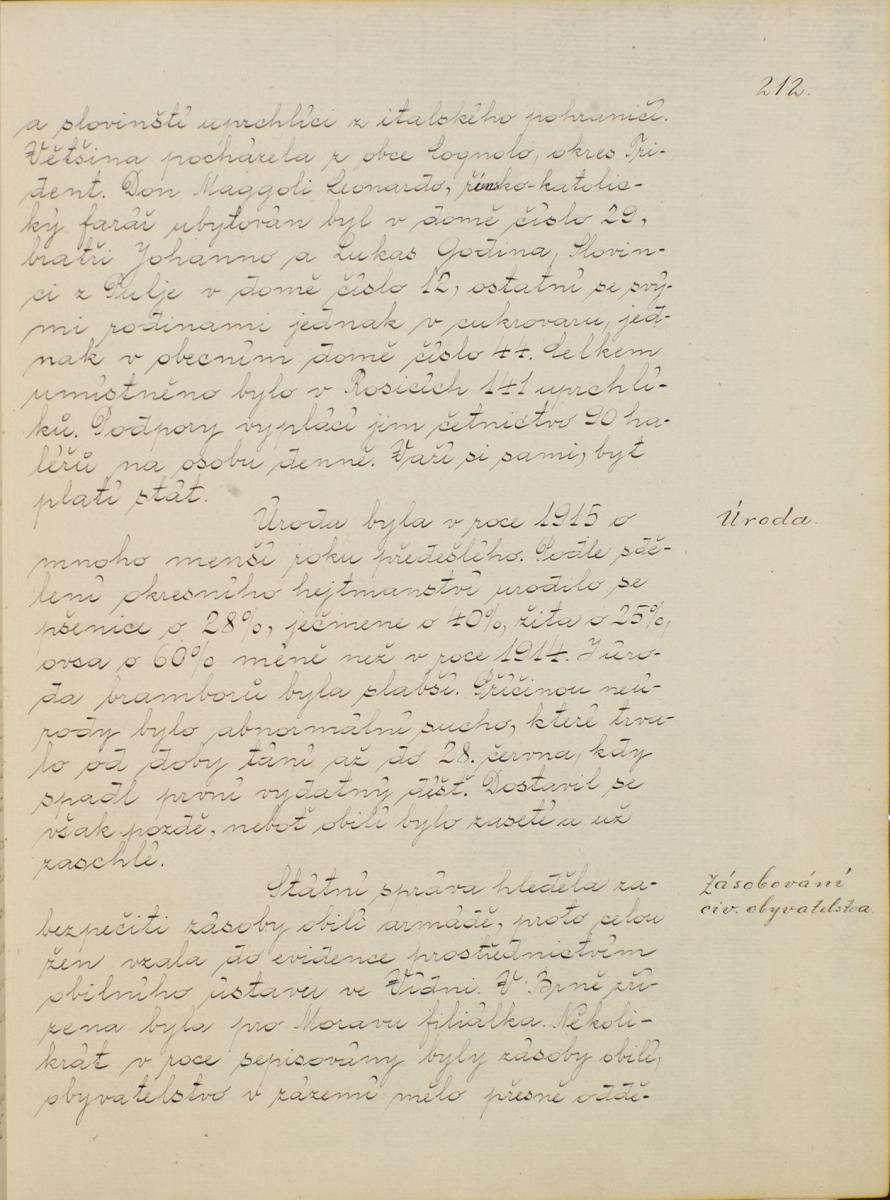 212.
a slovinští uprchlíci z italského pohraničí.
Většina pocházela z obce Cognolo, okres Tri-
dent. Don Maggoli Leonardo, římsko-katolic-
ký farář ubytován byl v domě číslo 29,
bratři Johanno a Lukas Godina, Slovin-
ci z Pulje v domě číslo 12, ostatní se svý-
mi rodinami jednak v cukrovaru, jed-
nak v obecním domě číslo 44. Celkem
umístněno bylo v Rosicích 141 uprchlí-
ků. Podpory vyplácí jim četnictvo 90 ha-
léřů na osobu denně. Vaří si sami, byt
platí stát.
Úroda byla v roce 1915 o
mnoho menší roku předešlého. Podle sdě-
lení okresního hejtmanství urodilo se
pšenice o 28%, ječmene o 40%, žita o 25%,
ovsa o 60% méně než v roce 1914. I úro-
da bramborů byla slabší. Příčinou neú-
rody bylo abnormální sucho, které trva-
lo od doby tání až do 28. června, kdy
spadl první vydatný déšť. Dostavil se
však pozdě, neboť obilí bylo zaseté a už
zaschlé.
Státní správa hleděla za-
bezpečiti zásoby obilí armádě, proto celou
žen vzala do evidence prostřednictvím
obilního ústavu ve Vídni. V Brně zří-
zena byla pro Moravu filiálka. Několi-
krát v roce sepisovány byly zásoby obilí,
obyvatelstvo v zázemí mělo přesně oddě-
Úroda.
Zásobování
civ. obyvatelstva.